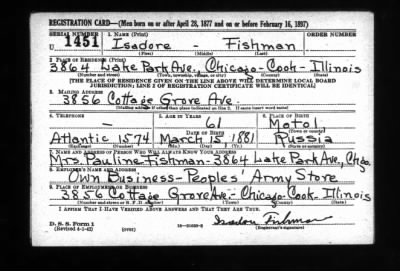 REGISTRATION CARD—(Men born on or after April 28, 1877 and on or before February 16, 1897)
SERIAL NUMBER 1. NAME (Print) ORDER NUMBER
U 1451 Isadore - Fishman
(First) (Middle) (Last)
2. PLACE OF RESIDENCE (Print)
3864 Lake Park Ave, Chicago - Cook - Illinois
(Number and street) (Town, township, village, or city) (County) (State)
[THE PLACE OF RESIDENCE GIVEN ON THE LINE ABOVE WILL DETERMINE LOCAL BOARD
JURISDICTION; LINE 2 OF REGISTRATION CERTIFICATE WILL BE IDENTICAL]
3. MAILING ADDRESS
3856 Cottage Grove Ave.
(Mailing address if other than place indicated on line 2. If same insert word same)
4. TELEPHONE 5. AGE IN YEARS 6. PLACE OF BIRTH
— 61 Motol
DATE OF BIRTH (Town or county)
Atlantic 1574 March 15, 1881 Russia
(Exchange) (Number) (Mo.) (Day) (Yr.) (State or country)
7. NAME AND ADDRESS OF PERSON WHO WILL ALWAYS KNOW YOUR ADDRESS
Mrs. Pauline Fishman - 3864 Lake Park Ave, Chgo.
8. EMPLOYER'S NAME AND ADDRESS
Own Business - Peoples' Army Store
9. PLACE OF EMPLOYMENT OR BUSINESS
3856 Cottage Grove Ave - Chicago - Cook - Illinois
(Number and street or R. F. D. number) (Town) (County) (State)
I AFFIRM THAT I HAVE VERIFIED ABOVE ANSWERS AND THAT THEY ARE TRUE.
D. S. S. Form 1 Isadore Fishman
(Revised 4-1-42) (over) (Registrant's signature)